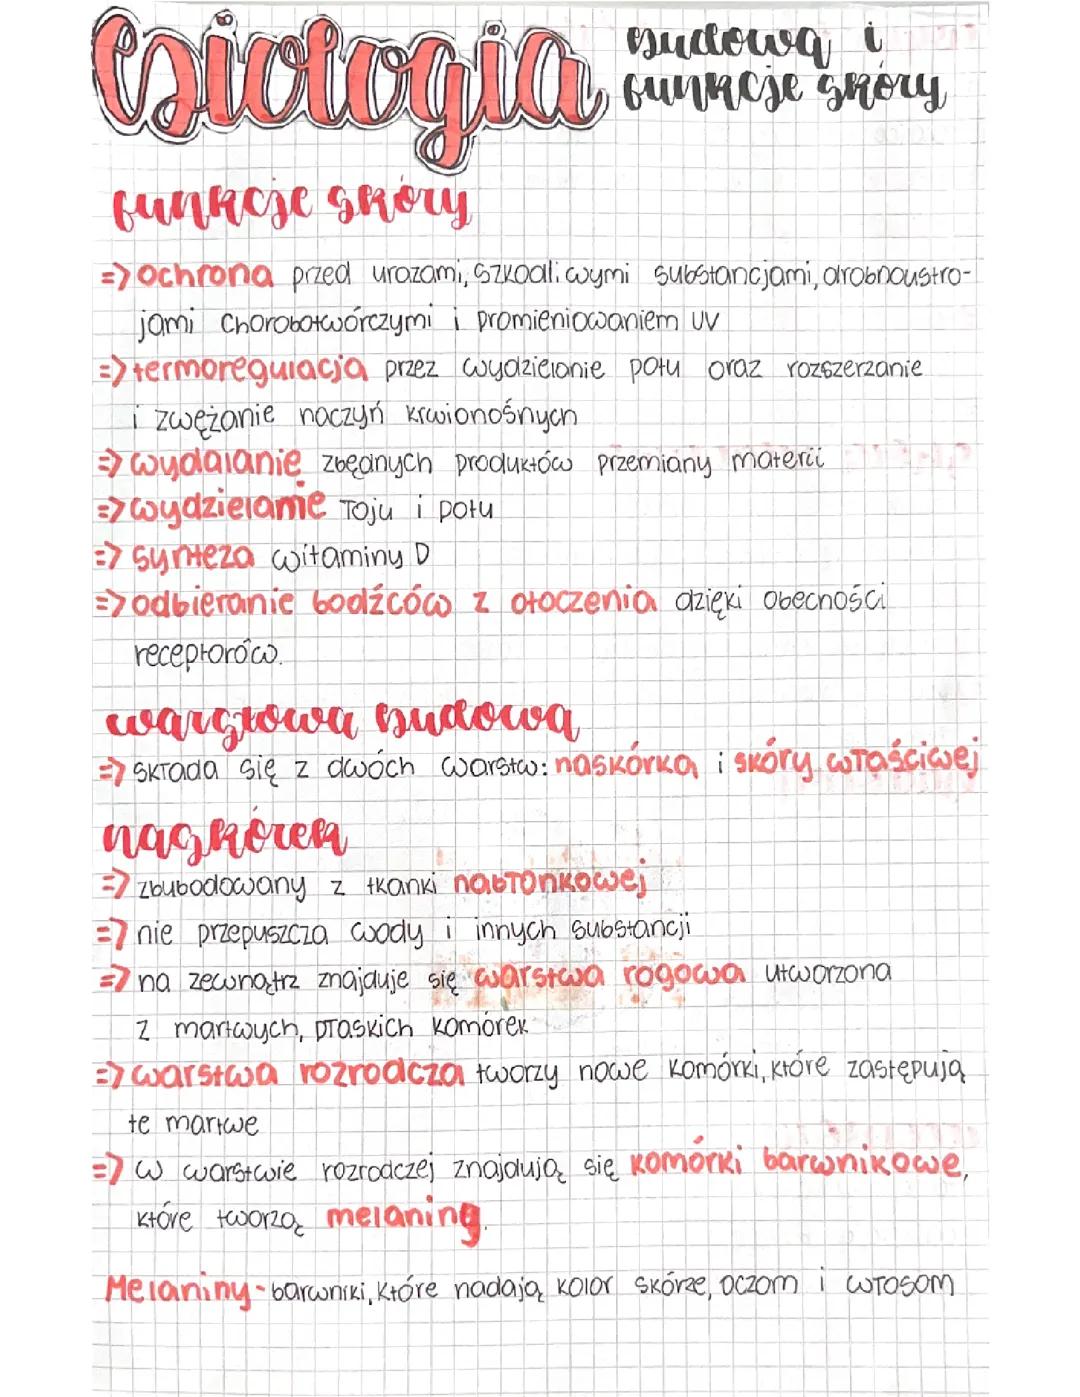 biologia
budowa i
funkcje skóry
funkcje skóry
=> ochrona przed urazami, szkodliwymi substancjami, drobnoustro-
jami chorobotwórczymi i promieniowaniem UV
=> termoregulacja przez wydzielanie potu oraz rozszerzanie
i zwężanie naczyń krwionośnych
=> wydalanie zbędnych produktów przemiany materii
=> wydzielanie łoju i potu
=> synteza witaminy D
=> odbieranie bodźców z otoczenia dzięki obecności
receptorów.
warstwowa budowa
=> składa się z dwóch warstw: naskórka i skóry właściwej
naskórek
=> zbubodowany z tkanki nabłonkowej
=> nie przepuszcza wody i innych substancji
=> na zewnątrz znajduje się warstwa rogowa utworzona
z martwych, płaskich komórek
=> warstwa rozrodcza tworzy nowe komórki, które zastępują
te martwe
=> w warstwie rozrodczej znajdują się komórki barwnikowe,
które tworzą melaninę.
Melaniny - barwniki, które nadają kolor skórze, oczom i włosom